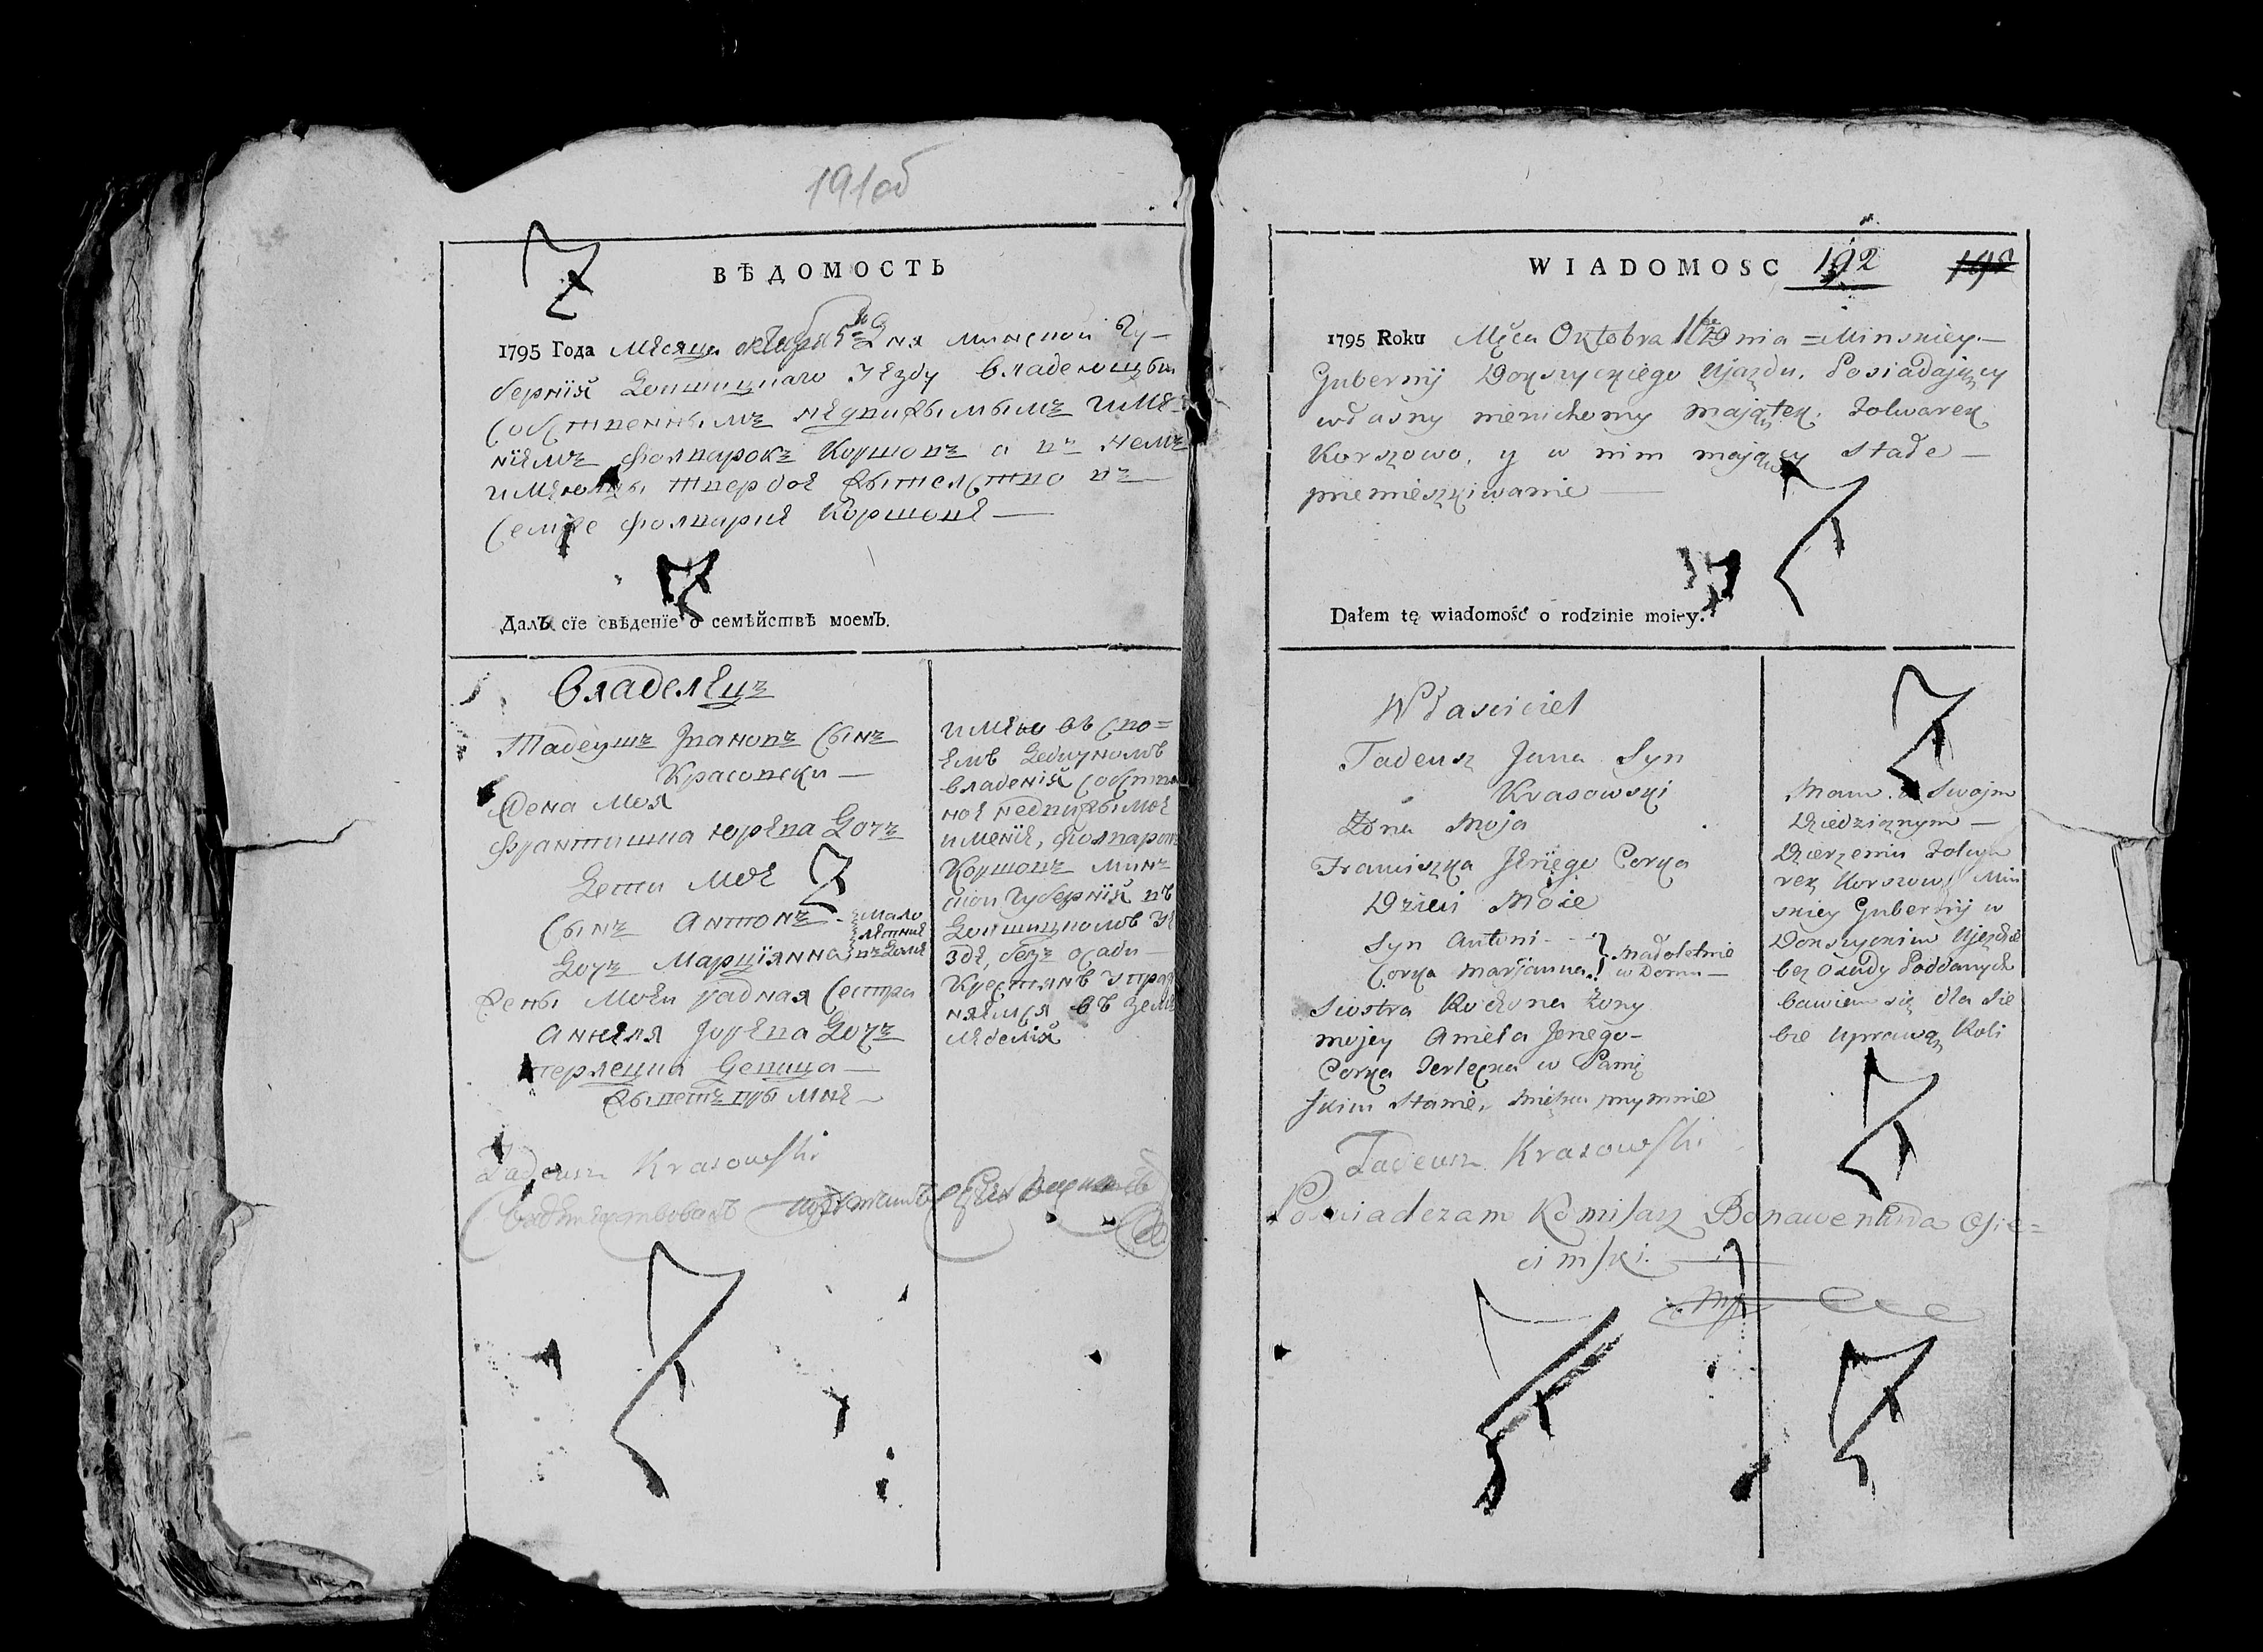 191об
ВѢДОМОСТЬ
1795 Года Месяца октября Дня минской Гу-
бернїй Докшицкаго уезду владеющы
собственнымъ недвижымымъ имѣ-
нїемъ фолварокъ Коршовъ а въ немъ
имеющы твердое жытелство въ
семже фолварке Коршове
Далъ сїе свѣденїе о семѣйствѣ моемъ.
владелецъ
Тадеушъ Ивановъ сынъ
Красовски
Жена моя
Франтишка юрева Дочъ
Дети мое
сынъ Антонъ мало
летние
Дочъ Марцїянна въ Доме
Жены моеи радная сестра
Анеля Дочъ
Девица
жыветъ пры мне
имею въ сво=
емъ Дедичномъ
владенїй собствен
ное недвижымое
именїе, фолварокъ
Коршовъ мин
скои Губернїй въ
Докшицкомъ уе
зде, безъ осади
крестянъ упраж
няемся въ земле
меделїй
Tadeusz Krasowski
WIADOMOSC 192
1795 Roku Mca Oktobra Dnia Minskiey
Gubernij Dokszyckiego Ujazdu. Posiadający
własny nieruchomy majątek. Folwarek
Korszowo, y w nim mający stałe
pomieszkiwanie
Dałem tę wiadomość o rodzinie moiey.
Własciciel
Tadeusz Jana Syn
Krasowski
Żona Moja
Franciszka Corka
Dzieci Moie
Syn Antoni małoletnie
Corka Marjanna w Domu
Siostra Rodzona Żony
mojey Aniela
Corka w Panię
skim Stanie, mieszka przymnie
Mam w Swojm
Dziedzicznym
Dzierzeniu Folwa
rek Korszow Min
skiey Gubernij w
Dokszyckim Ujezdzie
bez Osady Poddanych
bawiem się dla sie
bie uprawą Roli
Tadeusz Krasowski
Poswiadczam Komisarz Bonawentura Osie=
cimski.